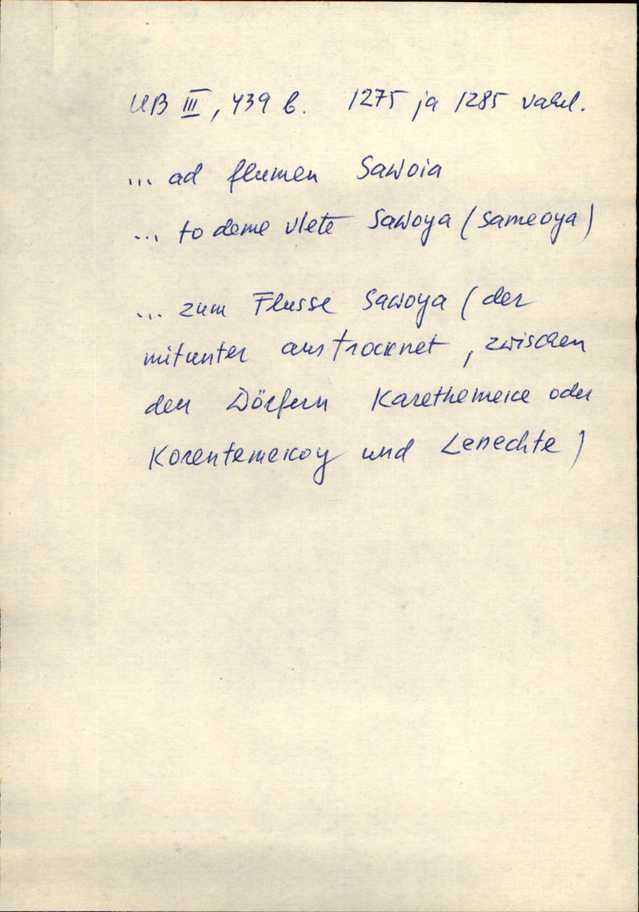 UB III, 439 b. 1275 ja 1285 vahel.
... ad flumen Sawoia
... to deme vlete Sawoya (Sameoya)
... zum Flusse Sawoya (der
mitunter austrocknet, zwischen
den Dörfern Karethemeke oder
Korentemekoy und Lenechte)